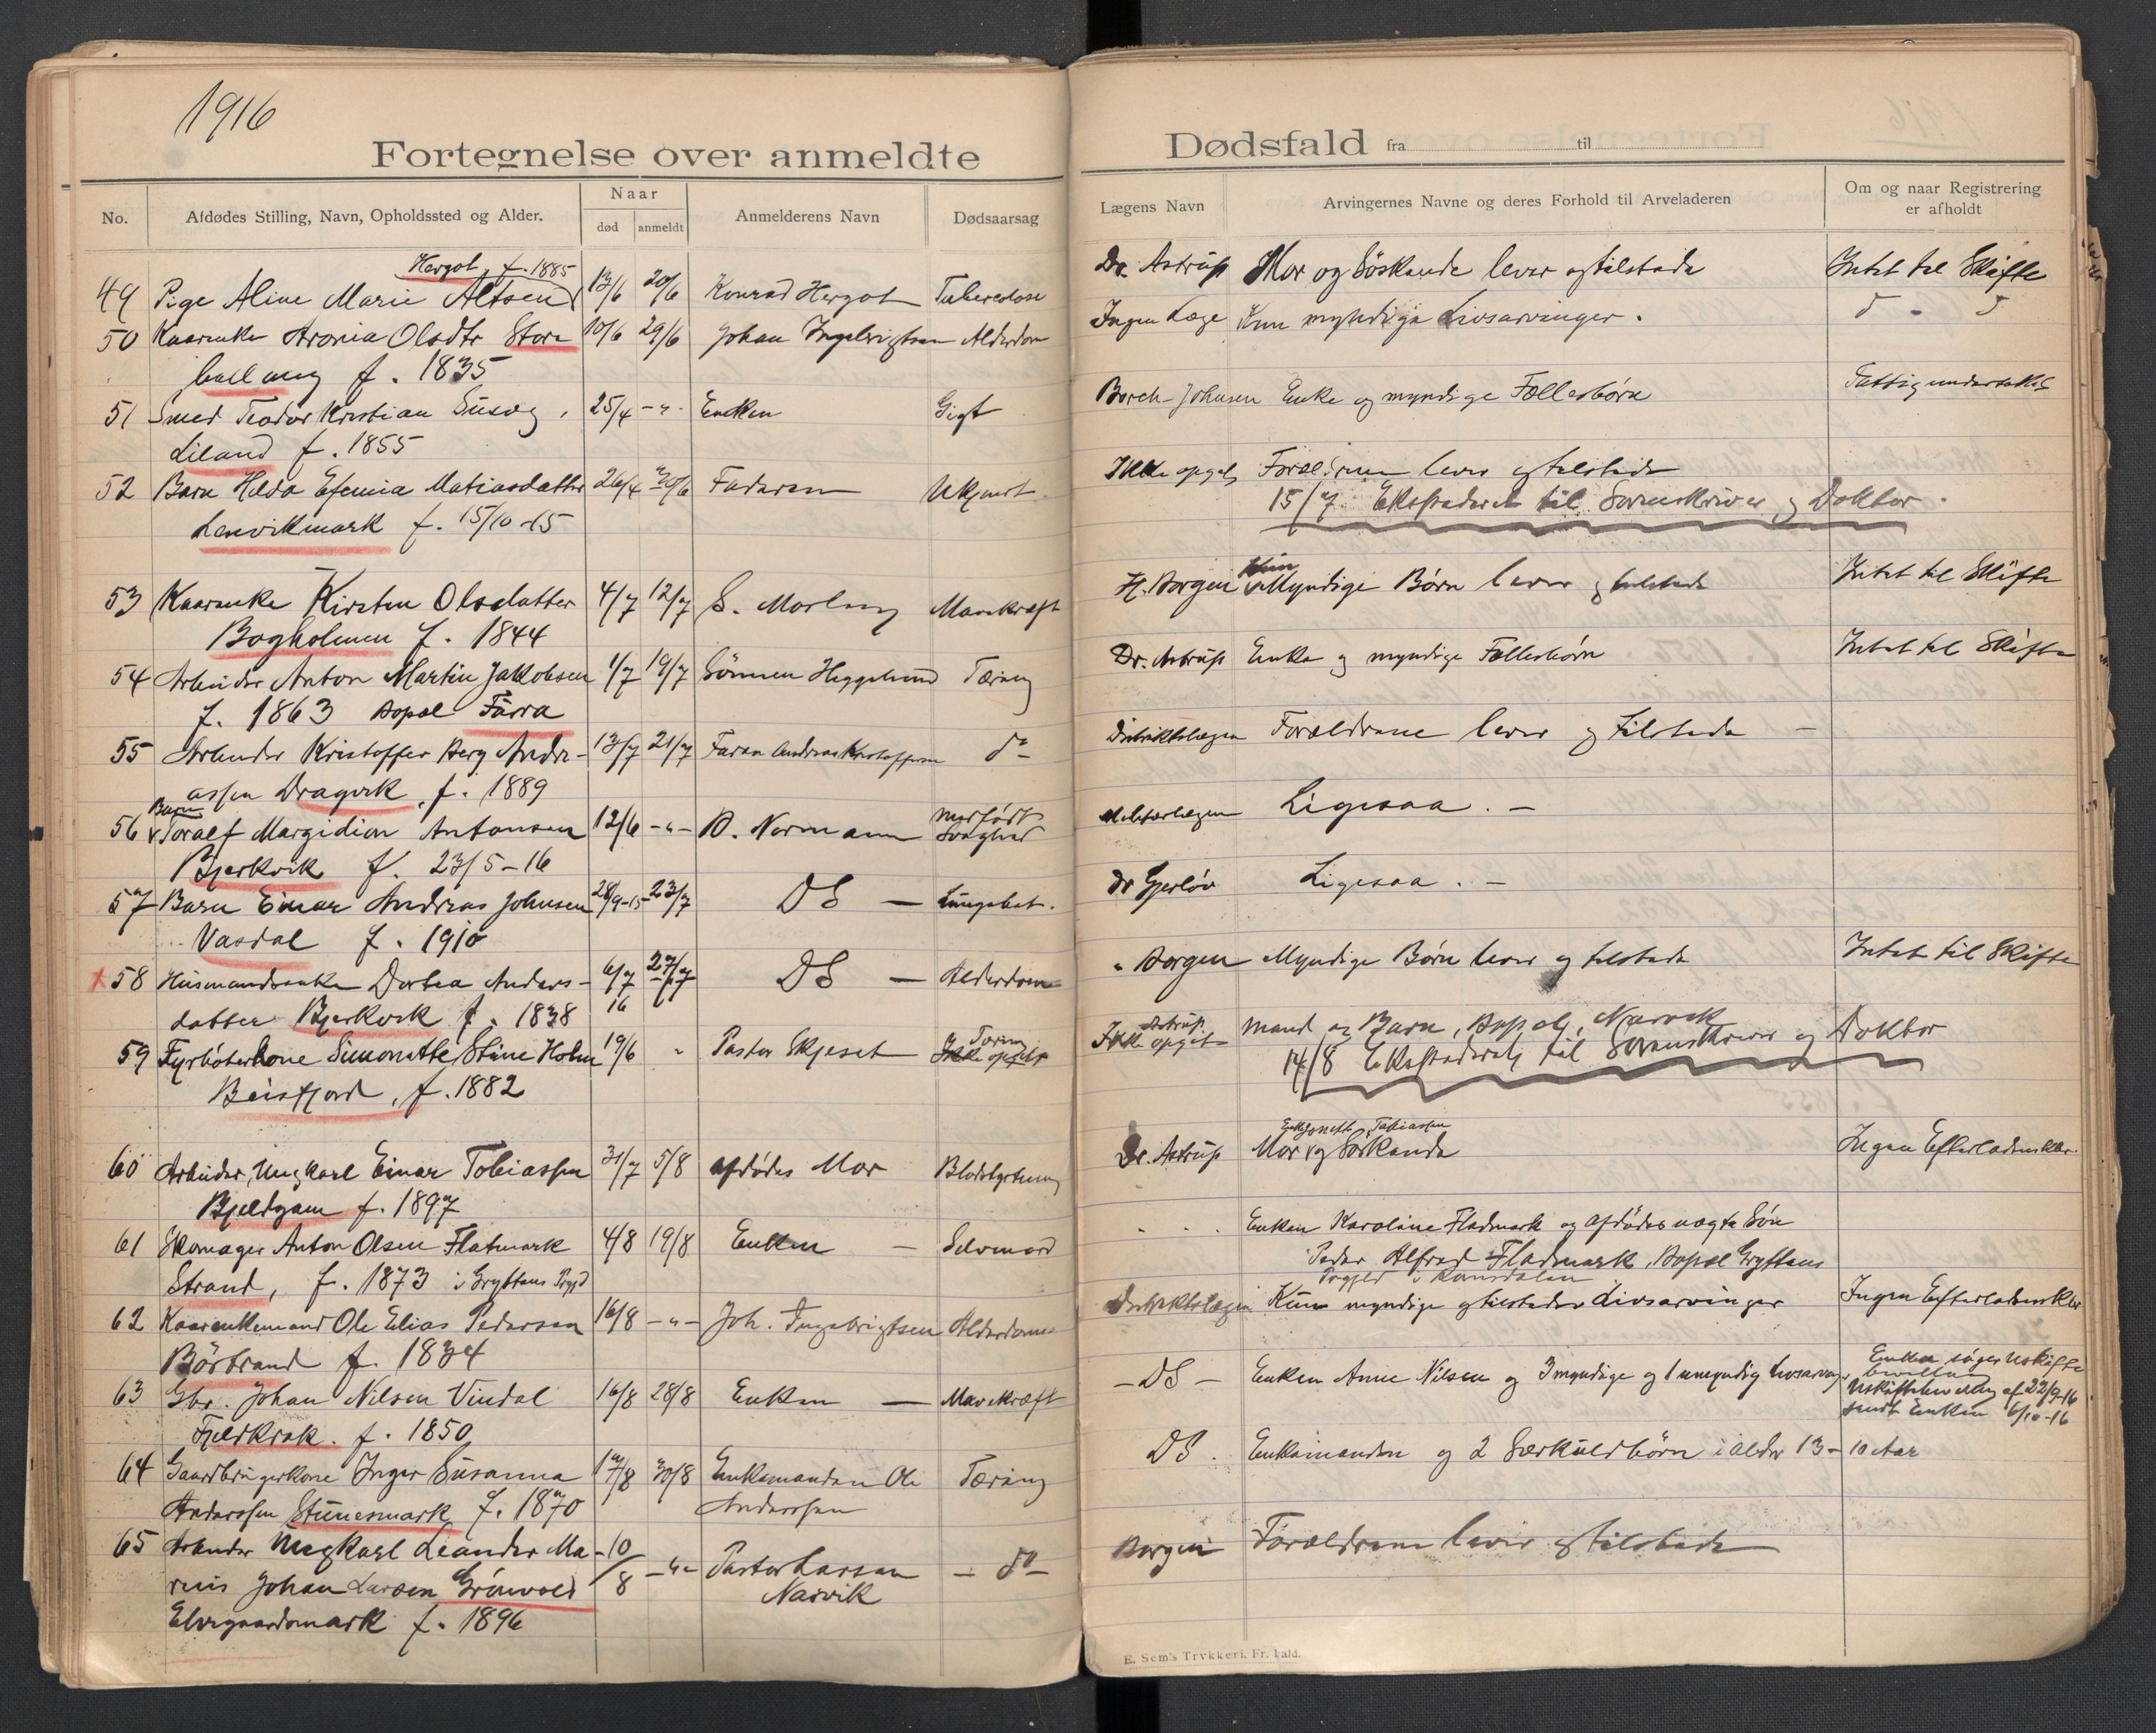 1916
Fortegnelse over anmeldte
Dødsfald fra til
No.
Afdødes Stilling, Navn, Opholdssted og Alder.
Naar
død
anmeldt
Anmelderens Navn
Dødsaarsag
Lægens Navn
Arvingernes Navne og deres Forhold til Arveladeren
Om og naar Registrering
er afholdt
Hergot, f. 1885
49 Pige Aline Marie Altsen 13/6 20/6 Konrad Hergot Tuberculose Dr. Astrup Mor og Søskende lever og tilstede Intet til Skifte
50 Kaarenke Aronia Olsdtr Store 10/6 29/6 Johan Ingebrigtsen Alderdom Ingen Læge Kun myndige Livsarvinger.
ballang f. 1835
51 Smed Teodor Kristian 25/4 -"- Enken Gigt Borch-Johnsen Enke og myndige Fællesbørn
Liland f. 1855
52 Barn Hilda Efemia Matiasdatter 26/4 30/6 Faderen Ukjent Ikke opgit Forældrene lever og tilstede
Lenvikmark f. 15/10-15
15/7 Ekstraderet til Sorenskriver og Doktor.
53 Kaarenke Kirsten Olsdatter 4/7 12/7 S. Mavekræft H. Borgen Kun Myndige Børn lever og tilstede Intet til Skifte
Bogholmen f. 1844
54 Arbeider Anton Martin Jakobsen 1/7 19/7 Sønnen Heggelund Tæring Dr. Astrup Enke og myndige Fællesbørn Intet til Skifte
f. 1863 Bopæl
55 Arbeider Kristoffer Berg Andre- 13/7 21/7 Faren Andreas Kristoffersen do Distriktslægen Forældrene lever og tilstede -
assen Dragvik, f. 1889
Barn
56 Toralf Margidion Antonsen 12/6 -"- D. Normann medfødt Svaghed Ligesaa. -
Bjerkvik f. 23/5-16
57 Barn Einar Andreas Johnsen 28/9-15 23/7 DS - Lungebet. Dr Gjerløv Ligesaa. -
Vasdal f. 1910
x 58 Husmandsenke Dortea Anders- 6/7 16 27/7 DS - Alderdom " Borgen Myndige Børn lever og tilstede Intet til Skifte
datter Bjerkvik f. 1838
59 Fyrbøterkone Simonette Stine Holm 19/6 " Pastor Skjeset Tæring Ikke opgit Astrup Ikke opgit Mand og Barn, Bopæl, Narvik
Beisfjord, f. 1882
14/8 Ekstraderet til Sorenskriver og Doktor
60 Arbeider, Ungkarl Einar Tobiassen 31/7 5/8 afdødes Mor Blodstyrtning Dr. Astrup Mor og Søskende Ingen Efterladenskaber.
f. 1897
61 Skomager Anton Olsen Flatmark 4/8 19/8 Enken - Selvmord Enken Karoline Fladmark og afdødes uægte Søn
Strand, f. 1873 i Gryttens Prgjd
Peder Alfred Fladmark, Bopæl Gryttens
Prgjeld i Romsdalen
62 Kaarenkemand Ole Elias Pedersen 16/8 -"- Joh. Ingebrigtsen Alderdom Distriktslægen Kun myndige og tilstede Livsarvinger Ingen Efterladenskber
f. 1834
63 Gbr. Johan Nilsen Vindal 16/8 28/8 Enken - Mavekræft - DS - Enken Anne Nilsen og 3 myndige og 1 umyndig Livsarving Enken søger Uskifte
bevilling
af 22/9-16
sendt Enken 6/10-16
f. 1850
64 Gaardbrugerkone Inger Susanna 17/8 30/8 Enkemanden Ole Tæring DS. Enkemanden og 2 Særkuldbørn i Alder 13-10 Aar
Anderssen Stunesmark f. 1870 Anderssen
65 Arbeider Ungkarl Leander Ma- 10/8 -"- Pastor Larsen - do - Borgen Forældrene lever og tilstede
rius Johan Larsen Grønvold Narvik
Elvegaardsmark f. 1896
E. Sem's Trykkeri, Fr.hald.